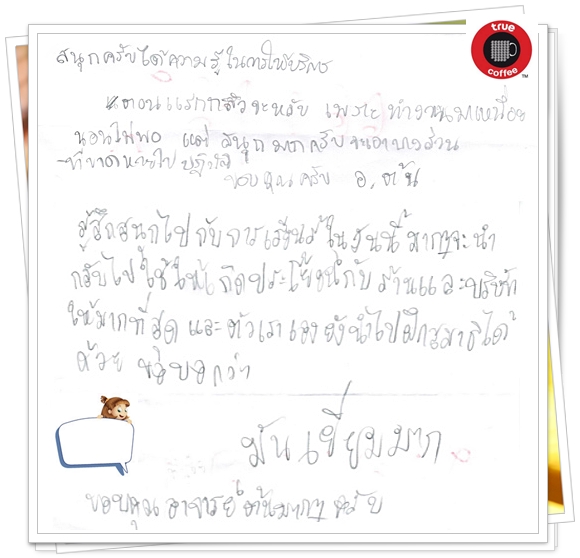 true
coffee
TM
สนุกครับได้ความรู้ในการให้บริการ
ตอนแรกกลัวจะหลับ เพราะทำงานมาเหนื่อย
นอนไม่พอ แต่ สนุกมากครับจะเอาบางส่วน
ที่ขาดหายไปปฏิบัติ
ขอบคุณครับ อ.ต้น
รู้สึกสนุกไปกับการเรียนรู้ในวันนี้มากๆจะนำ
กลับไปใช้ให้เกิดประโยชน์กับร้านและบริษัท
ให้มากที่สุด และตัวเราเองยังนำไปฝึกสมาธิได้
ด้วย ขอบอกว่า
มันเยี่ยมมาก
ขอบคุณอาจารย์ต้นมากๆครับ